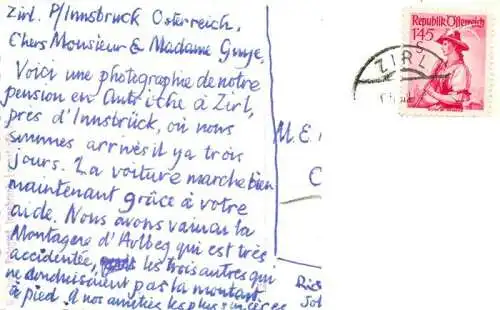 Zirl. P/Innsbruck Österreich.
Chers Monsieur & Madame Guye,
Voici une photographie de notre
pension en Autrithe à Zirl,
pres d'Innsbrück, où nous
sommes arrivès il ya trois
jours. La voiture marche bien
maintenant grâce à votre
aide. Nous avons vaincu la
Montagne d'Arlbeg qui est très
accidentée, les trois autres qui
ne conduisaient pas la montant
à pied. nos amitiés les plus sincères
M. E
C
Republik Österreich
1.45 S
ZIRL